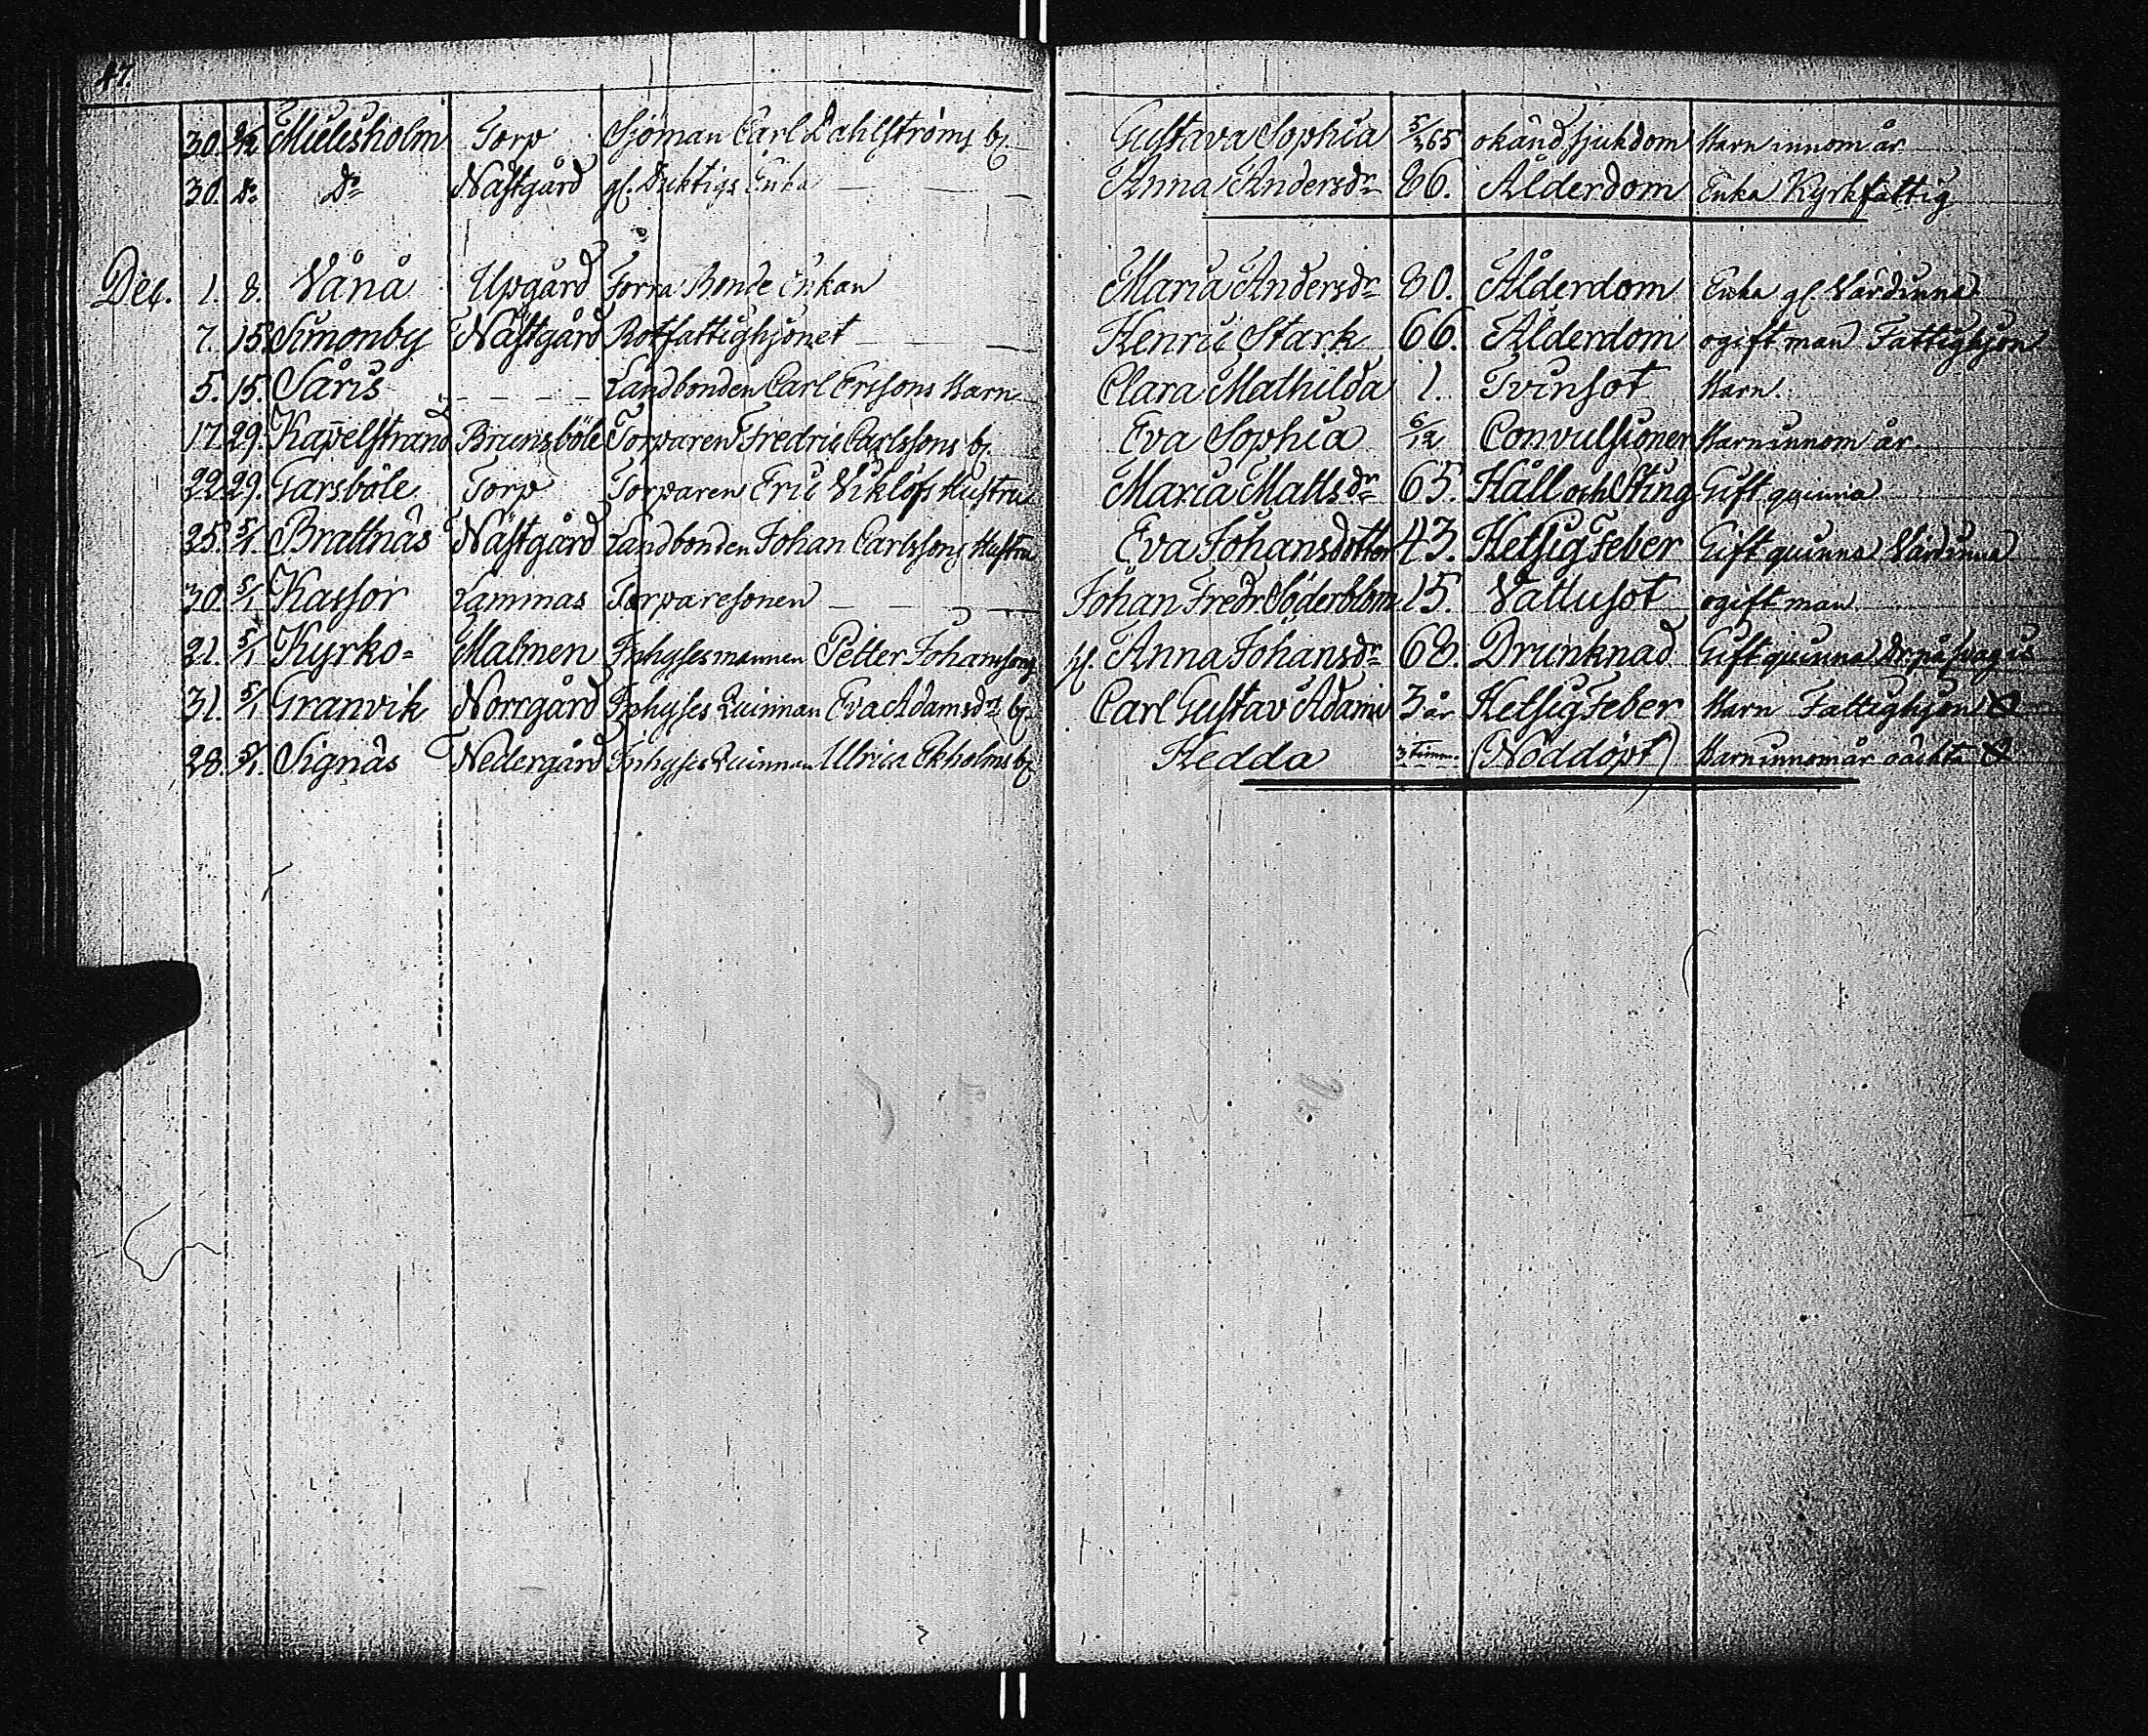 47.
30. 8/12 Mielisholm Torp Sjöman Carl Dahlströms b. Gustava Sophia 5/365 okänd sjukdom Barn innom år
30. Do Do Nästgård gl. Duktigs Enka Anna Andersdr 86. Ålderdom Enka Kyrkfattig
Dec. 1. 8. Vånå Upgård Förra Bonde Enkan Maria Andersdr 80. Ålderdom Enka gl. Värdinna
7. 15. Simonby Nästgård Rotfattighjonet Henric Stark 66. Ålderdom ogift man Fattighjon
5. 15. Såris Landbonden Carl Ersons Barn Clara Mathilda 1. Tvinsot Barn.
17. 29. Kapelstrand Brunsböle Torparen Fredric Carlssons b. Eva Sophia 6/12 Convulsioner Barn innom år
22. 29. Garsböle Torp Torparen Eric Viklöfs Hustru Maria Mattsdr 65. Håll och Sting Gift quinna
25. 5/1. Brattnäs Nästgård Landbonden Johan Carlssons Hustru Eva Johansdotter 43. Hetsig Feber Gift quinna Värdinna
30. 5/1 Kassor Lamnäs Torparesonen Johan Fredr Söderblom 15. Vattusot ogift man
21. 5/1 Kyrko= Malmen Inhysesmannen Petter Johanssons h. Anna Johansdr 68. Drunknad Gift quinna Dr. på svag is
31. 5/1 Granvik Norrgård Inhyses Quinnan Eva Adamsdr b. Carl Gustav Adamn 3 år Hetsig Feber Barn Fattighjon
28. 5/1. Signäs Nedergård Inhyses Quinnan Ulrica Ekholms b. Hedda 3 timm. (Nöddöpt) Barn innom år oächta